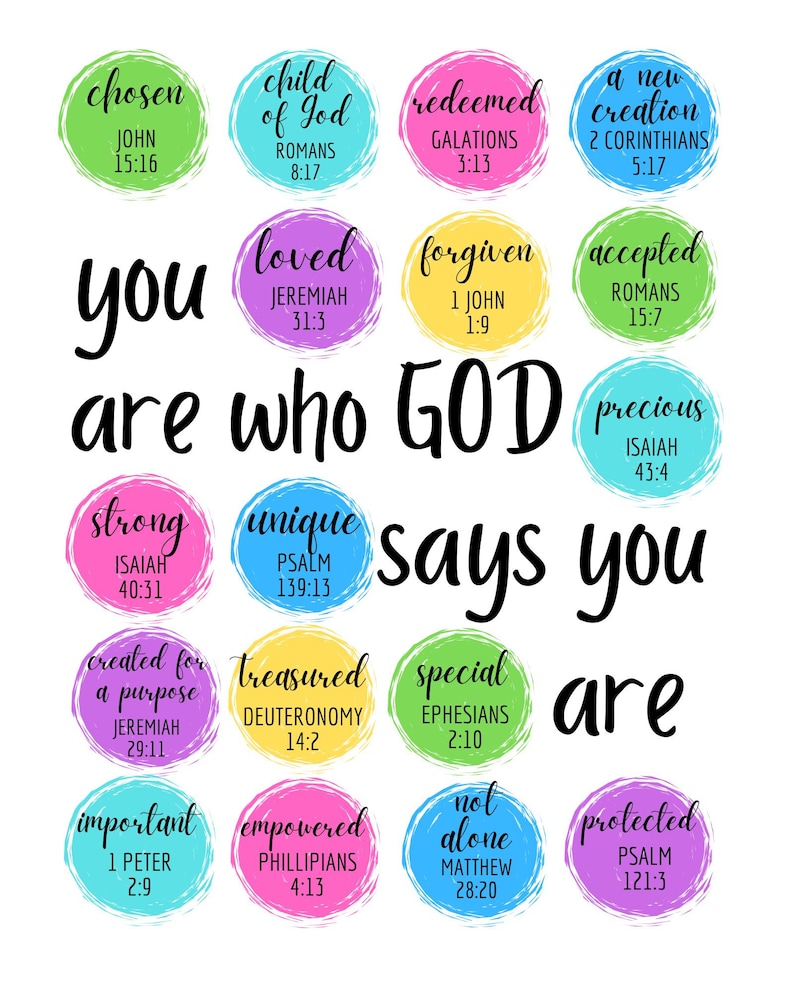 chosen
JOHN
15:16
child
of God
ROMANS
8:17
redeemed
GALATIONS
3:13
a new
creation
2 CORINTHIANS
5:17
you
loved
JEREMIAH
31:3
forgiven
1 JOHN
1:9
accepted
ROMANS
15:7
are who GOD
precious
ISAIAH
43:4
strong
ISAIAH
40:31
unique
PSALM
139:13
says you
created for
a purpose
JEREMIAH
29:11
treasured
DEUTERONOMY
14:2
special
EPHESIANS
2:10
are
important
1 PETER
2:9
empowered
PHILLIPIANS
4:13
not
alone
MATTHEW
28:20
protected
PSALM
121:3